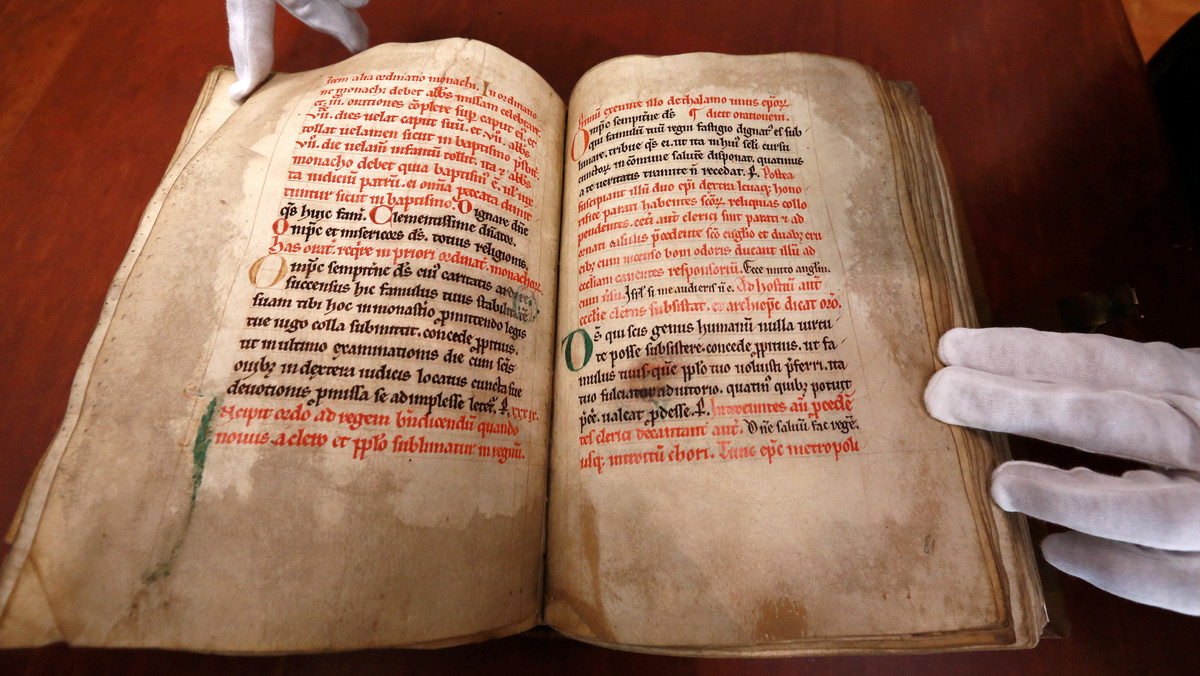 Item alia ordinatio monachi. In ordinatio
ne monachi debet abbs missam celebrare
et .iii. orationes cōplere sup caput ei. et
.vii. dies velat caput suū. et .vii. abbs
tollat uelamen sicut in baptismo psbit.
.vii. die velam infantū tollit. ita & abbs
monacho debet quia baptismū ē. iux
ta iudiciū patrū. ei omia peccata dimit
tuntur sicut in baptismo. Dignare dne
qs huic fam. Clementissime dnator.
Ompc et misericors ds. totius religionis.
has orat. reqire in priori ordinat. monachor.
Ompc sempitne ds cui caritatis ardore
succensus hic famulus tuus stabilitatē
suam tibi hoc in monastio pmittendo legis
tue iugo colla submittit. concede ppitius.
ut in ultimo examinationis die cum scis
ouibz in dextera iudicis locatus cuncta sue
deuotionis pmissa se adimplesse letet. P.
Incipit ordo ad regem bndicendū quando
nouus a clero et pplo sublimatur in regnū.
Primū exeunte illo de thalamo unus epor
dicit orationem.
Ompc sempitne ds
qui famulū tuū regni fastigio dignat es sub
limare. tribue qs ei. ut ita in hui seli cursu
cunctor in comune salute disponat. quatinus
a te veritatis tramite n recedat. P. Postea
suscipiant illū duo epi dextra leuaq; hono
rifice parati habentes scor reliquias collo
pendentes. ceti aut clerici sint parati & ad
ornati casulis pcedente sco euglio et duabz cru
cibz cum incenso boni odoris ducant illū ad
eccliam canentes responsoriū. Ecce mitto anglm.
cum usu. Isrl si me audieris n ē. Ad hostiū aut
ecclie clerus subsistat. et archiepc dicat oro.
Ds qui scis genus humanū nulla uirtu
te posse subsistere. concede ppitius. ut fa
mulus tuus que pplo tuo uoluisti pferri. ita
tuo fulciatur adiutorio. quatin quibz potuit
pee. ualeat pdesse. P. Introeuntes aū pcede
tes clerici decantant aut. Dne saluū fac rege.
usq; introitū chori. Tunc epc metropoli